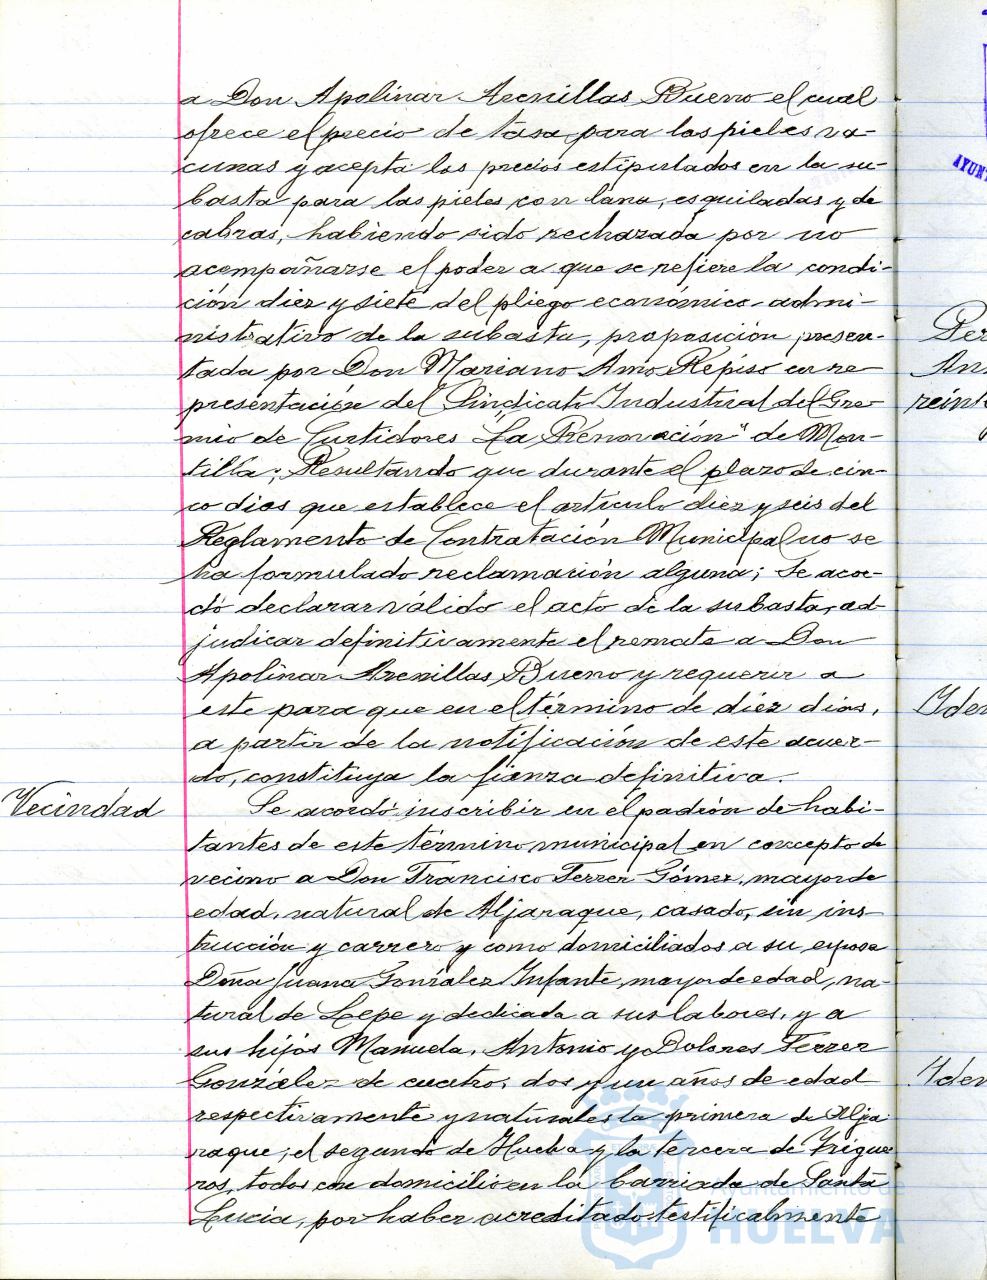 a Don Apolinar Arenillas Bueno el cual
ofrece el precio de tasa para las pieles va-
cunas y acepta los precios estipulados en la su-
basta para las pieles con lana, esquiladas y de
cabras, habiendo sido rechazada por no
acompañarse el poder a que se refiere la condi-
ción diez y siete del pliego económico-admi-
nistrativo de la subasta, proposición presen-
tada por Don Mariano Amo Repiso en re-
presentación del Sindicato Industrial del Gre-
mio de Curtidores "La Renovación" de Mon-
tilla; Resultando que durante el plazo de cin-
co dias que establece el artículo diez y seis del
Reglamento de Contratación Municipal no se
ha formulado reclamación alguna; Se acor-
dó declarar válido el acto de la subasta, ad-
judicar definitivamente el remate a Don
Apolinar Arenillas Bueno y requerir a
este para que en el término de diez dias,
a partir de la notificación de este acuer-
do, constituya la fianza definitiva.
Vecindad
Se acordó inscribir en el padrón de habi-
tantes de este término municipal en concepto de
vecino a Don Francisco Ferrer Gómez, mayor de
edad, natural de Aljaraque, casado, sin ins-
trucción y carrero y como domiciliados a su esposa
Doña Juana González Infante, mayor de edad, na-
tural de Lepe y dedicada a sus labores, y a
sus hijos Manuela, Antonio y Dolores Ferrer
González de cuatro, dos y un años de edad
respectivamente y naturales la primera de Alja-
raque, el segundo de Huelva y la tercera de Trigue-
ros, todos con domicilio en la barriada de Santa
Lucia, por haber acreditado testificalmente
Ayuntamiento de
HUELVA